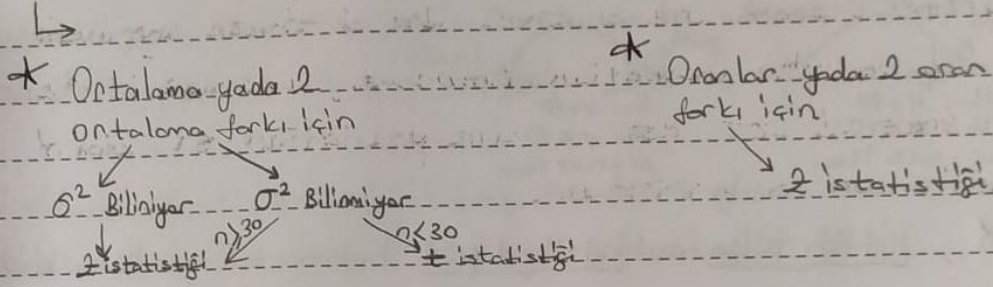 * Ortalama yada 2
ortalama farkı için
σ² Biliniyor
σ² Bilinmiyor
n≥30
n<30
Z istatistiği
t istatistiği
* Oranlar yada 2 oran
farkı için
Z istatistiği